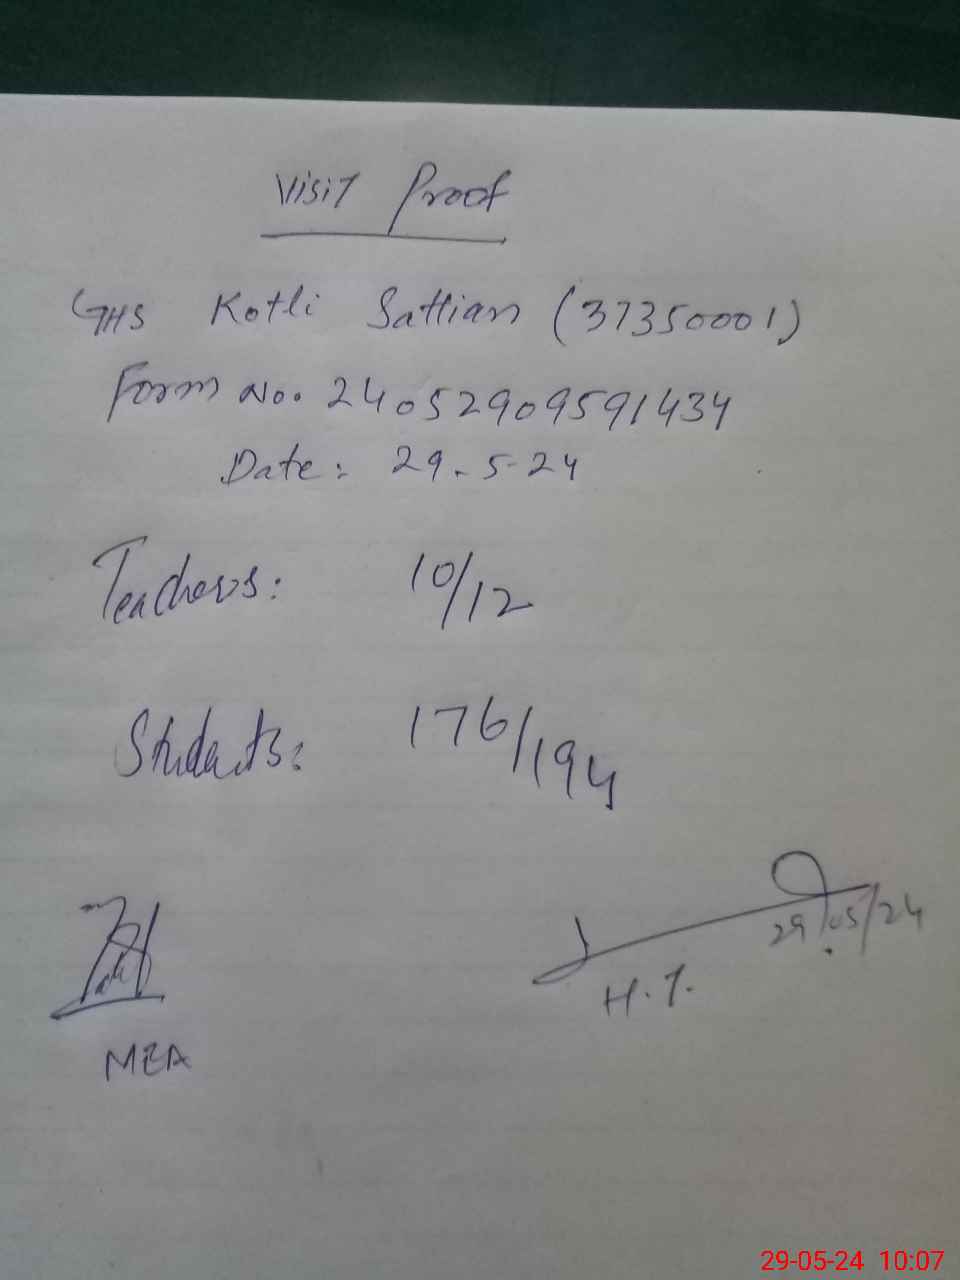 Visit Proof
GHS Kotli Sattian (37350001)
Form No. 24052909591434
Date: 29-5-24
Teachers: 10/12
Students: 176/194
29/05/24
H.T.
MEA
29-05-24 10:07